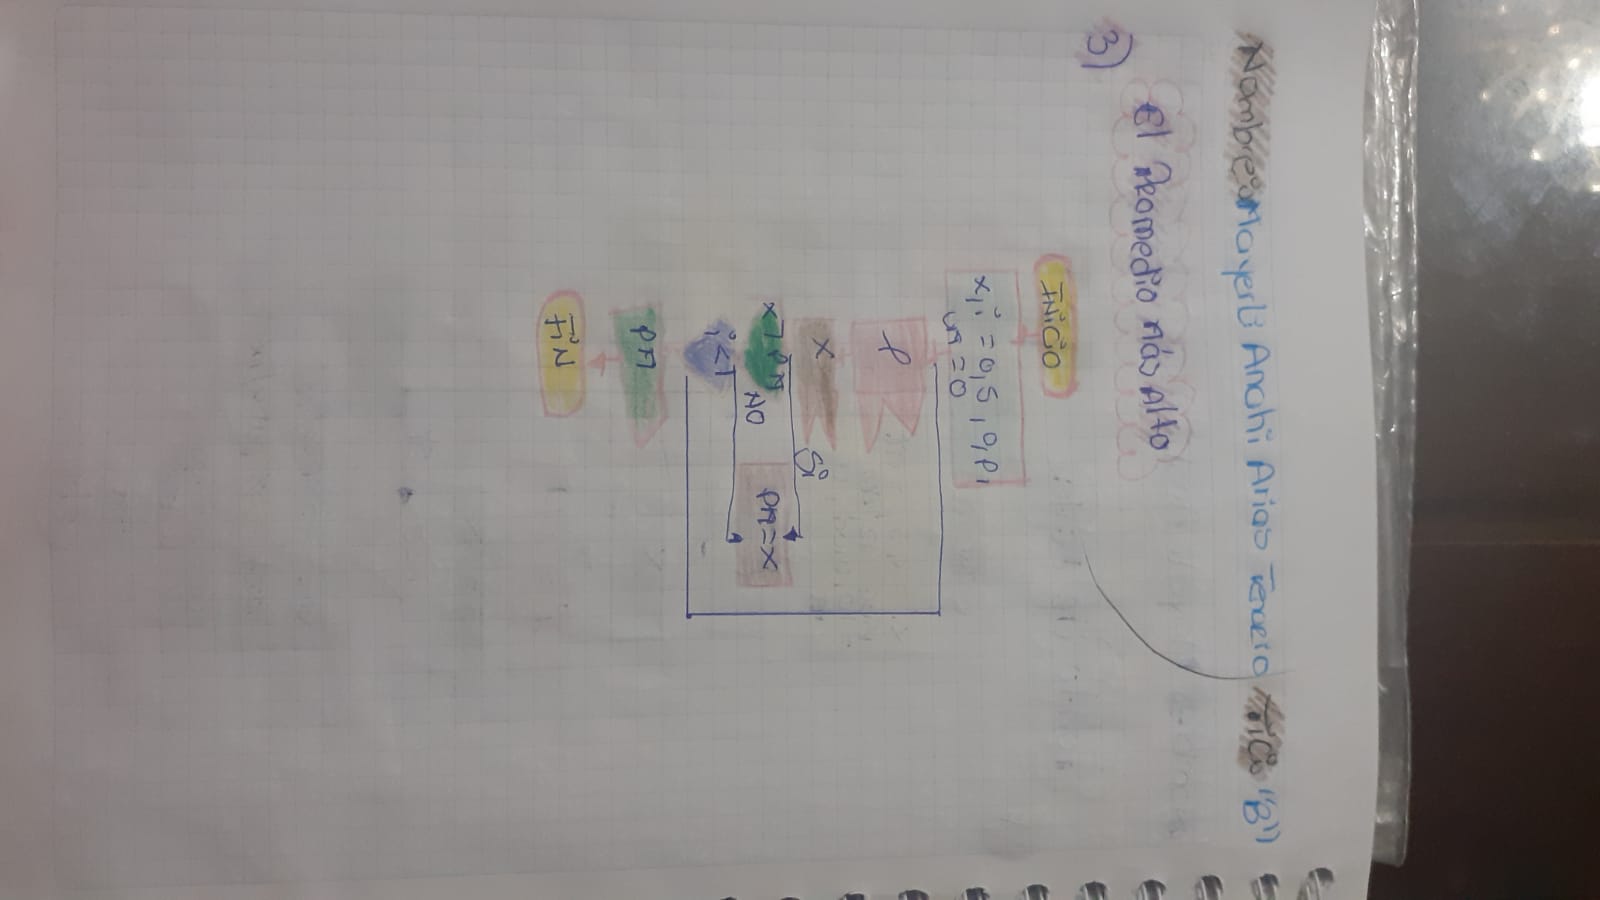 Nombre: Mayerli Anahi Arias Tenorio
"B"
3)
El Promedio Más Alto
INiCiO
x, i = 0, S, 9, P,
M = 0
P
X
x > PM
Si
NO
PM = X
i < 1
PM
FiN